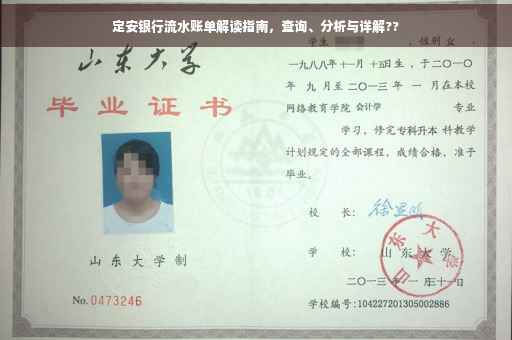 定安银行流水账单解读指南，查询、分析与详解??
山东大学
毕业证书
学生 ，性别 女 ，
一九八八年十一月 十五日生，于二〇一〇
年 九 月至 二〇一三 年 一 月在本校
网络教育学院 会计学 专业
学习，修完专科升本 科教学
计划规定的全部课程，成绩合格，准予
毕业。
校 长：
学 校： 山东大学
山东大学
山东大学制
二〇一三年 一月三十一日
No.0473246
学校编号:104227201305002886